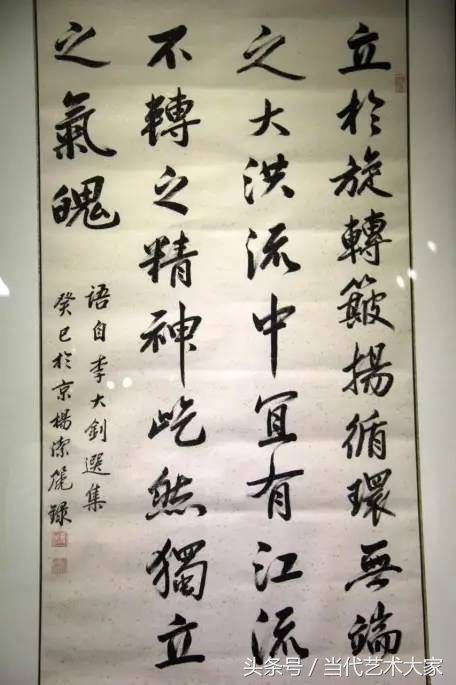 立於旋轉簸揚循環無端
之大洪流中宜有江流
不轉之精神屹然獨立
之氣魄
語自李大釗選集
癸巳於京楊潔篪錄
头条号／当代艺术大家